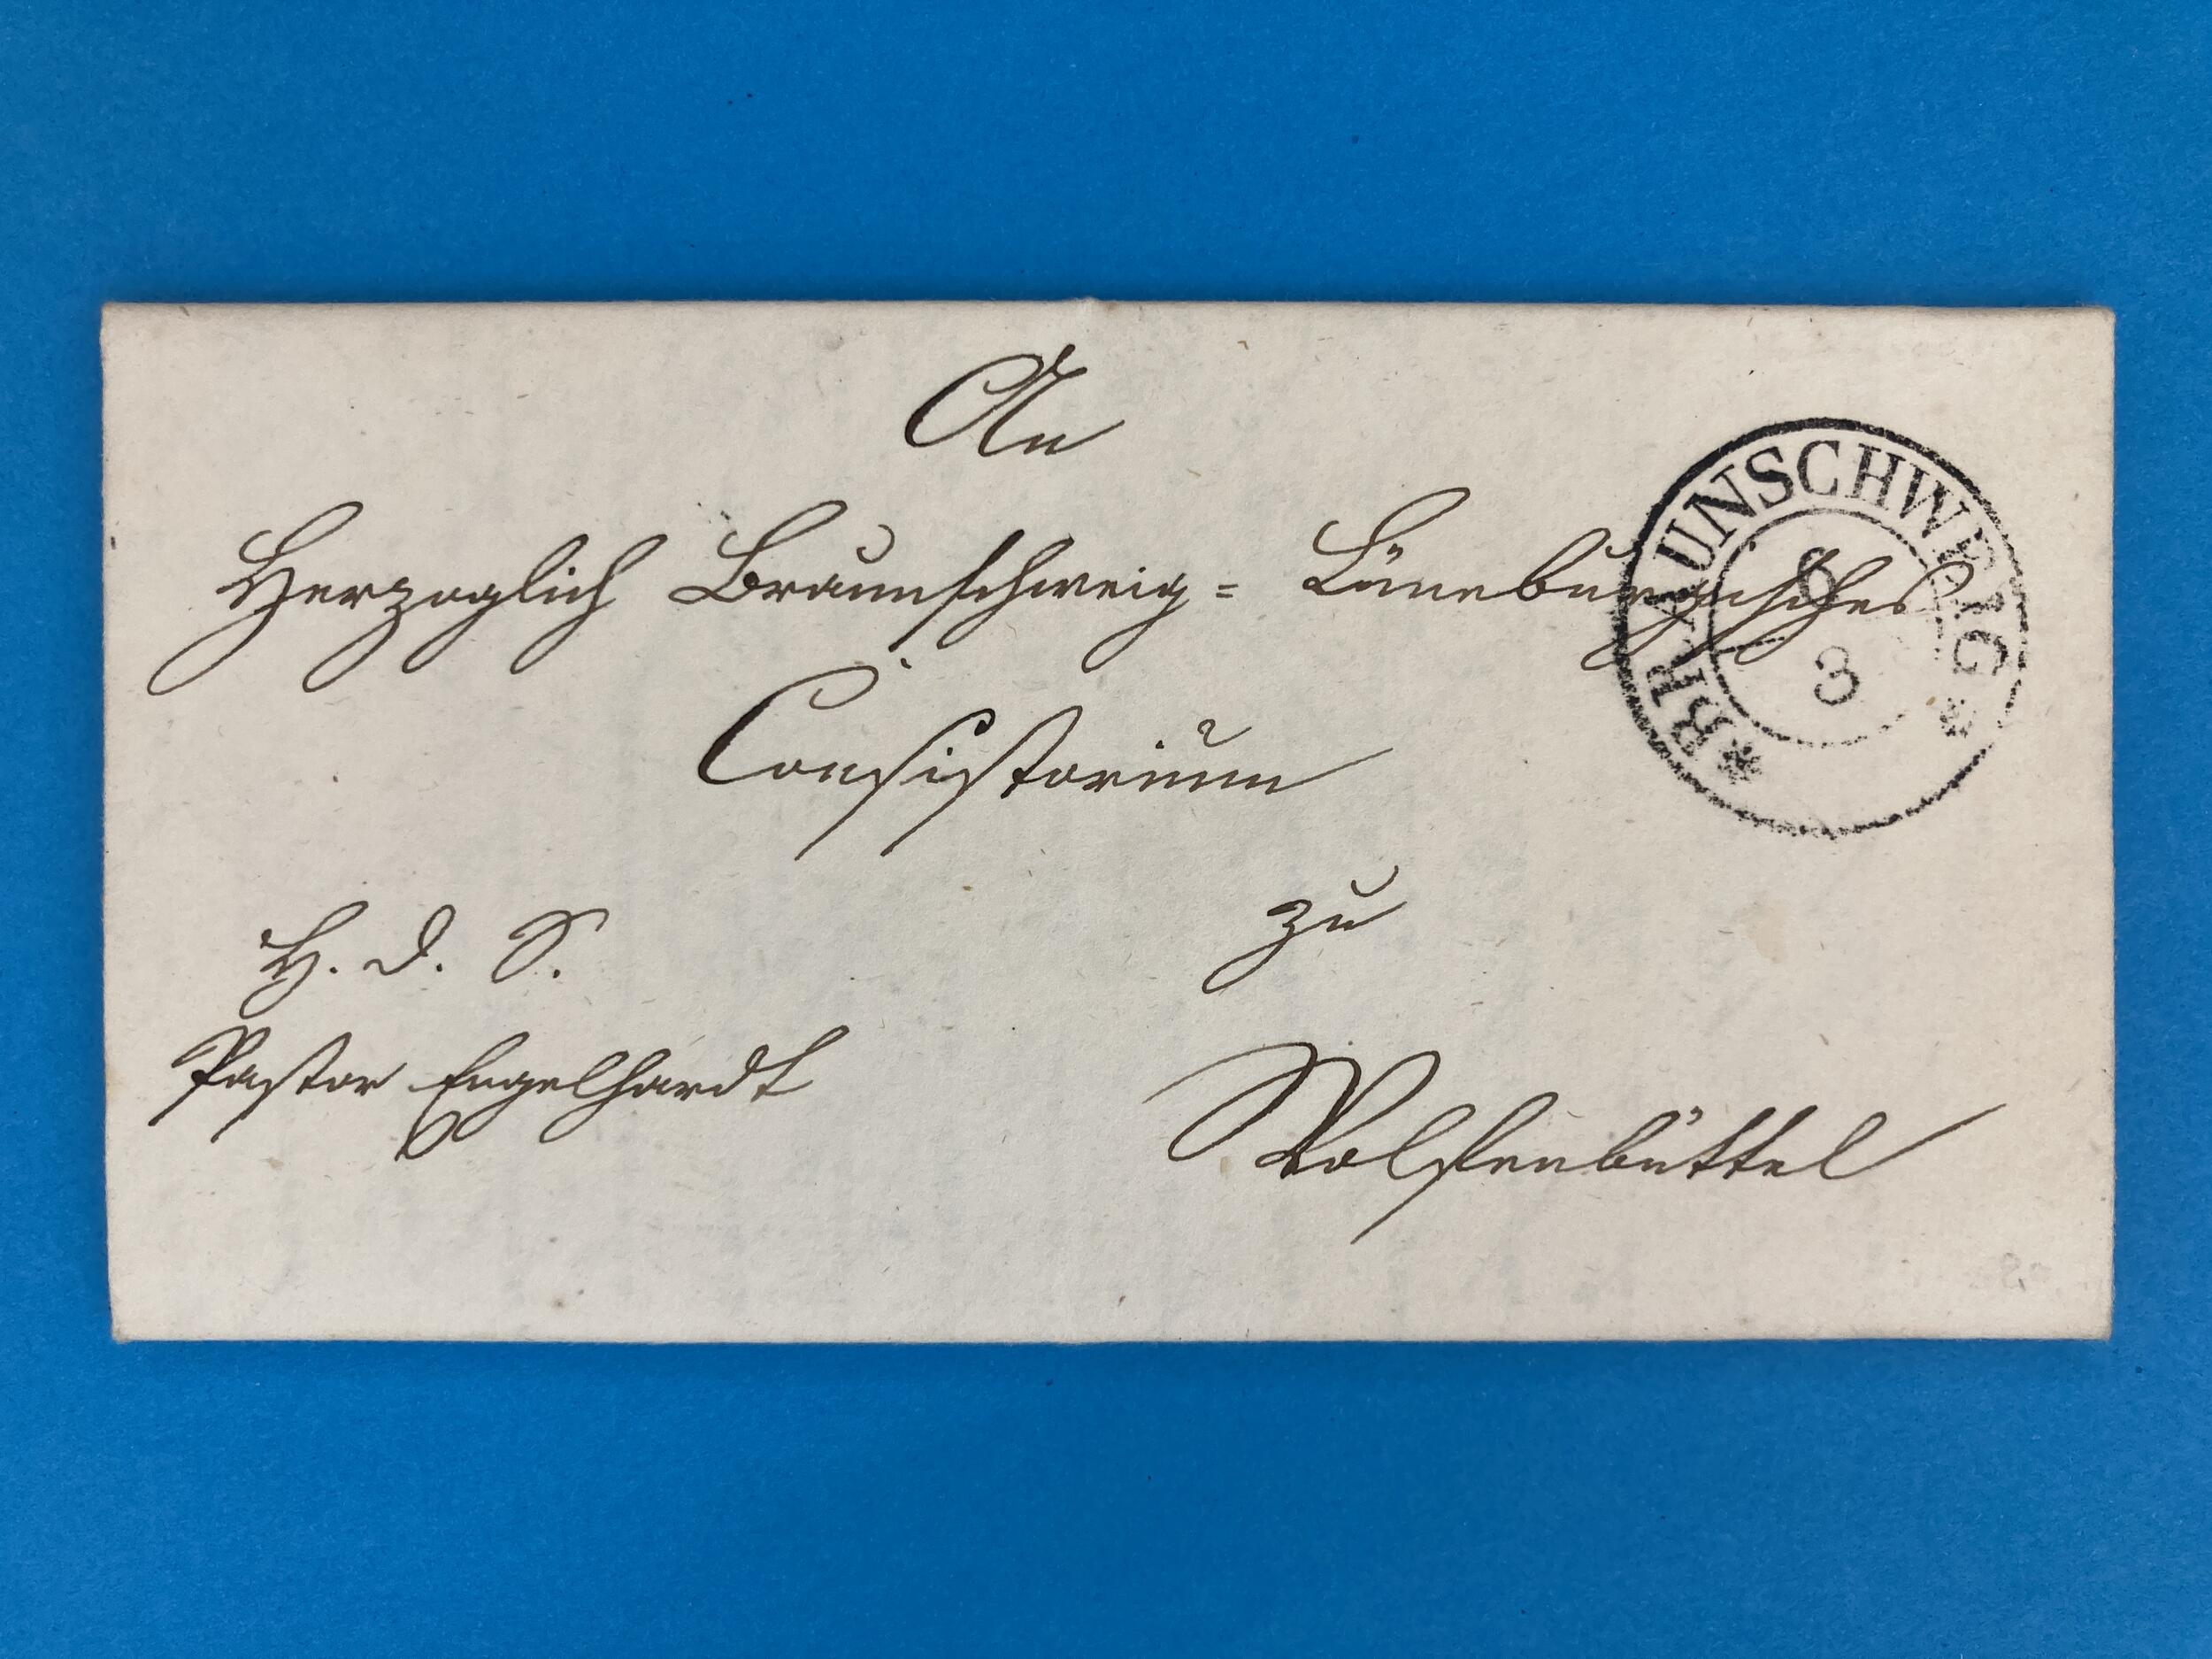 An
Herzoglich Braunschweig= Lüneburgisches
Consistorium
zu
Wolfenbüttel
H. d. S.
Pastor Engelhardt
*BRAUNSCHWEIG*
6
3